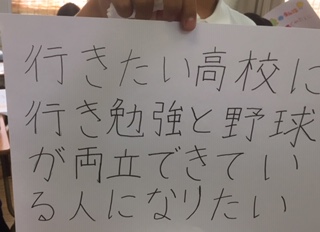 行きたい高校に
行き勉強と野球
が両立できてい
る人になりたい